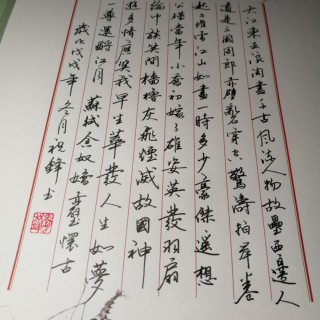 大江東去浪淘盡千古風流人物故壘西邊人
道是三國周郎赤壁亂石穿空驚濤拍岸卷
起千堆雪江山如畫一時多少豪傑遙想
公瑾當年小喬初嫁了雄姿英發羽扇
綸巾談笑間檣櫓灰飛煙滅故國神
遊多情應笑我早生華發人生如夢
一尊還酹江月 蘇軾念奴嬌赤壁懷古
歲次戊戌年冬月祝鋒書